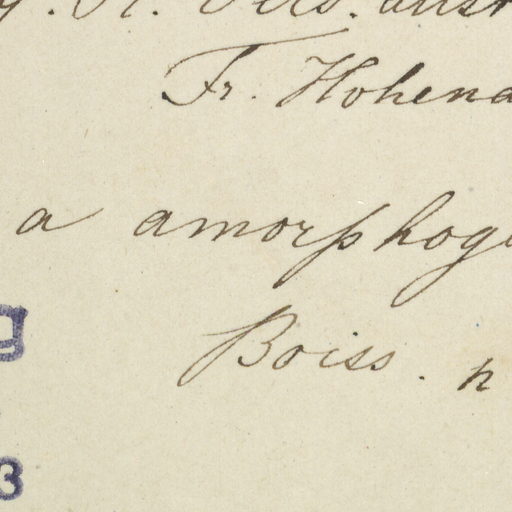 Fr. Hohena
a amorphogy
Boiss. n
3